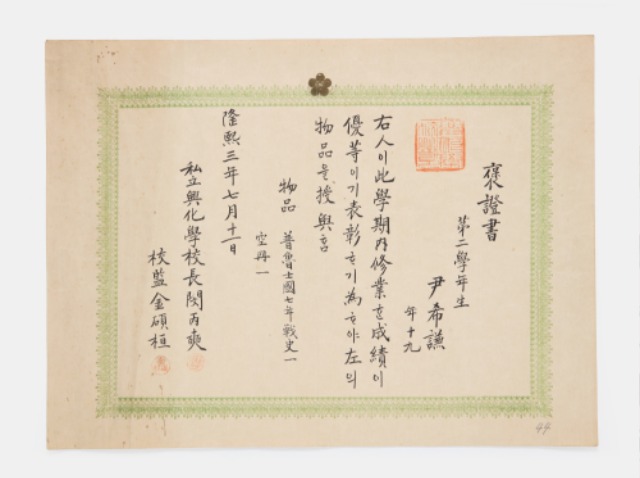 褒證書
第二學年生
尹希謙
年十九
右人이此學期內修業한成績이
優等이기表彰하기為하야左의
物品을授與홈
物品 普魯士國七年戰史一
空冊一
隆熙三年七月十一日
私立興化學校長閔丙奭
校監金碩桓
44